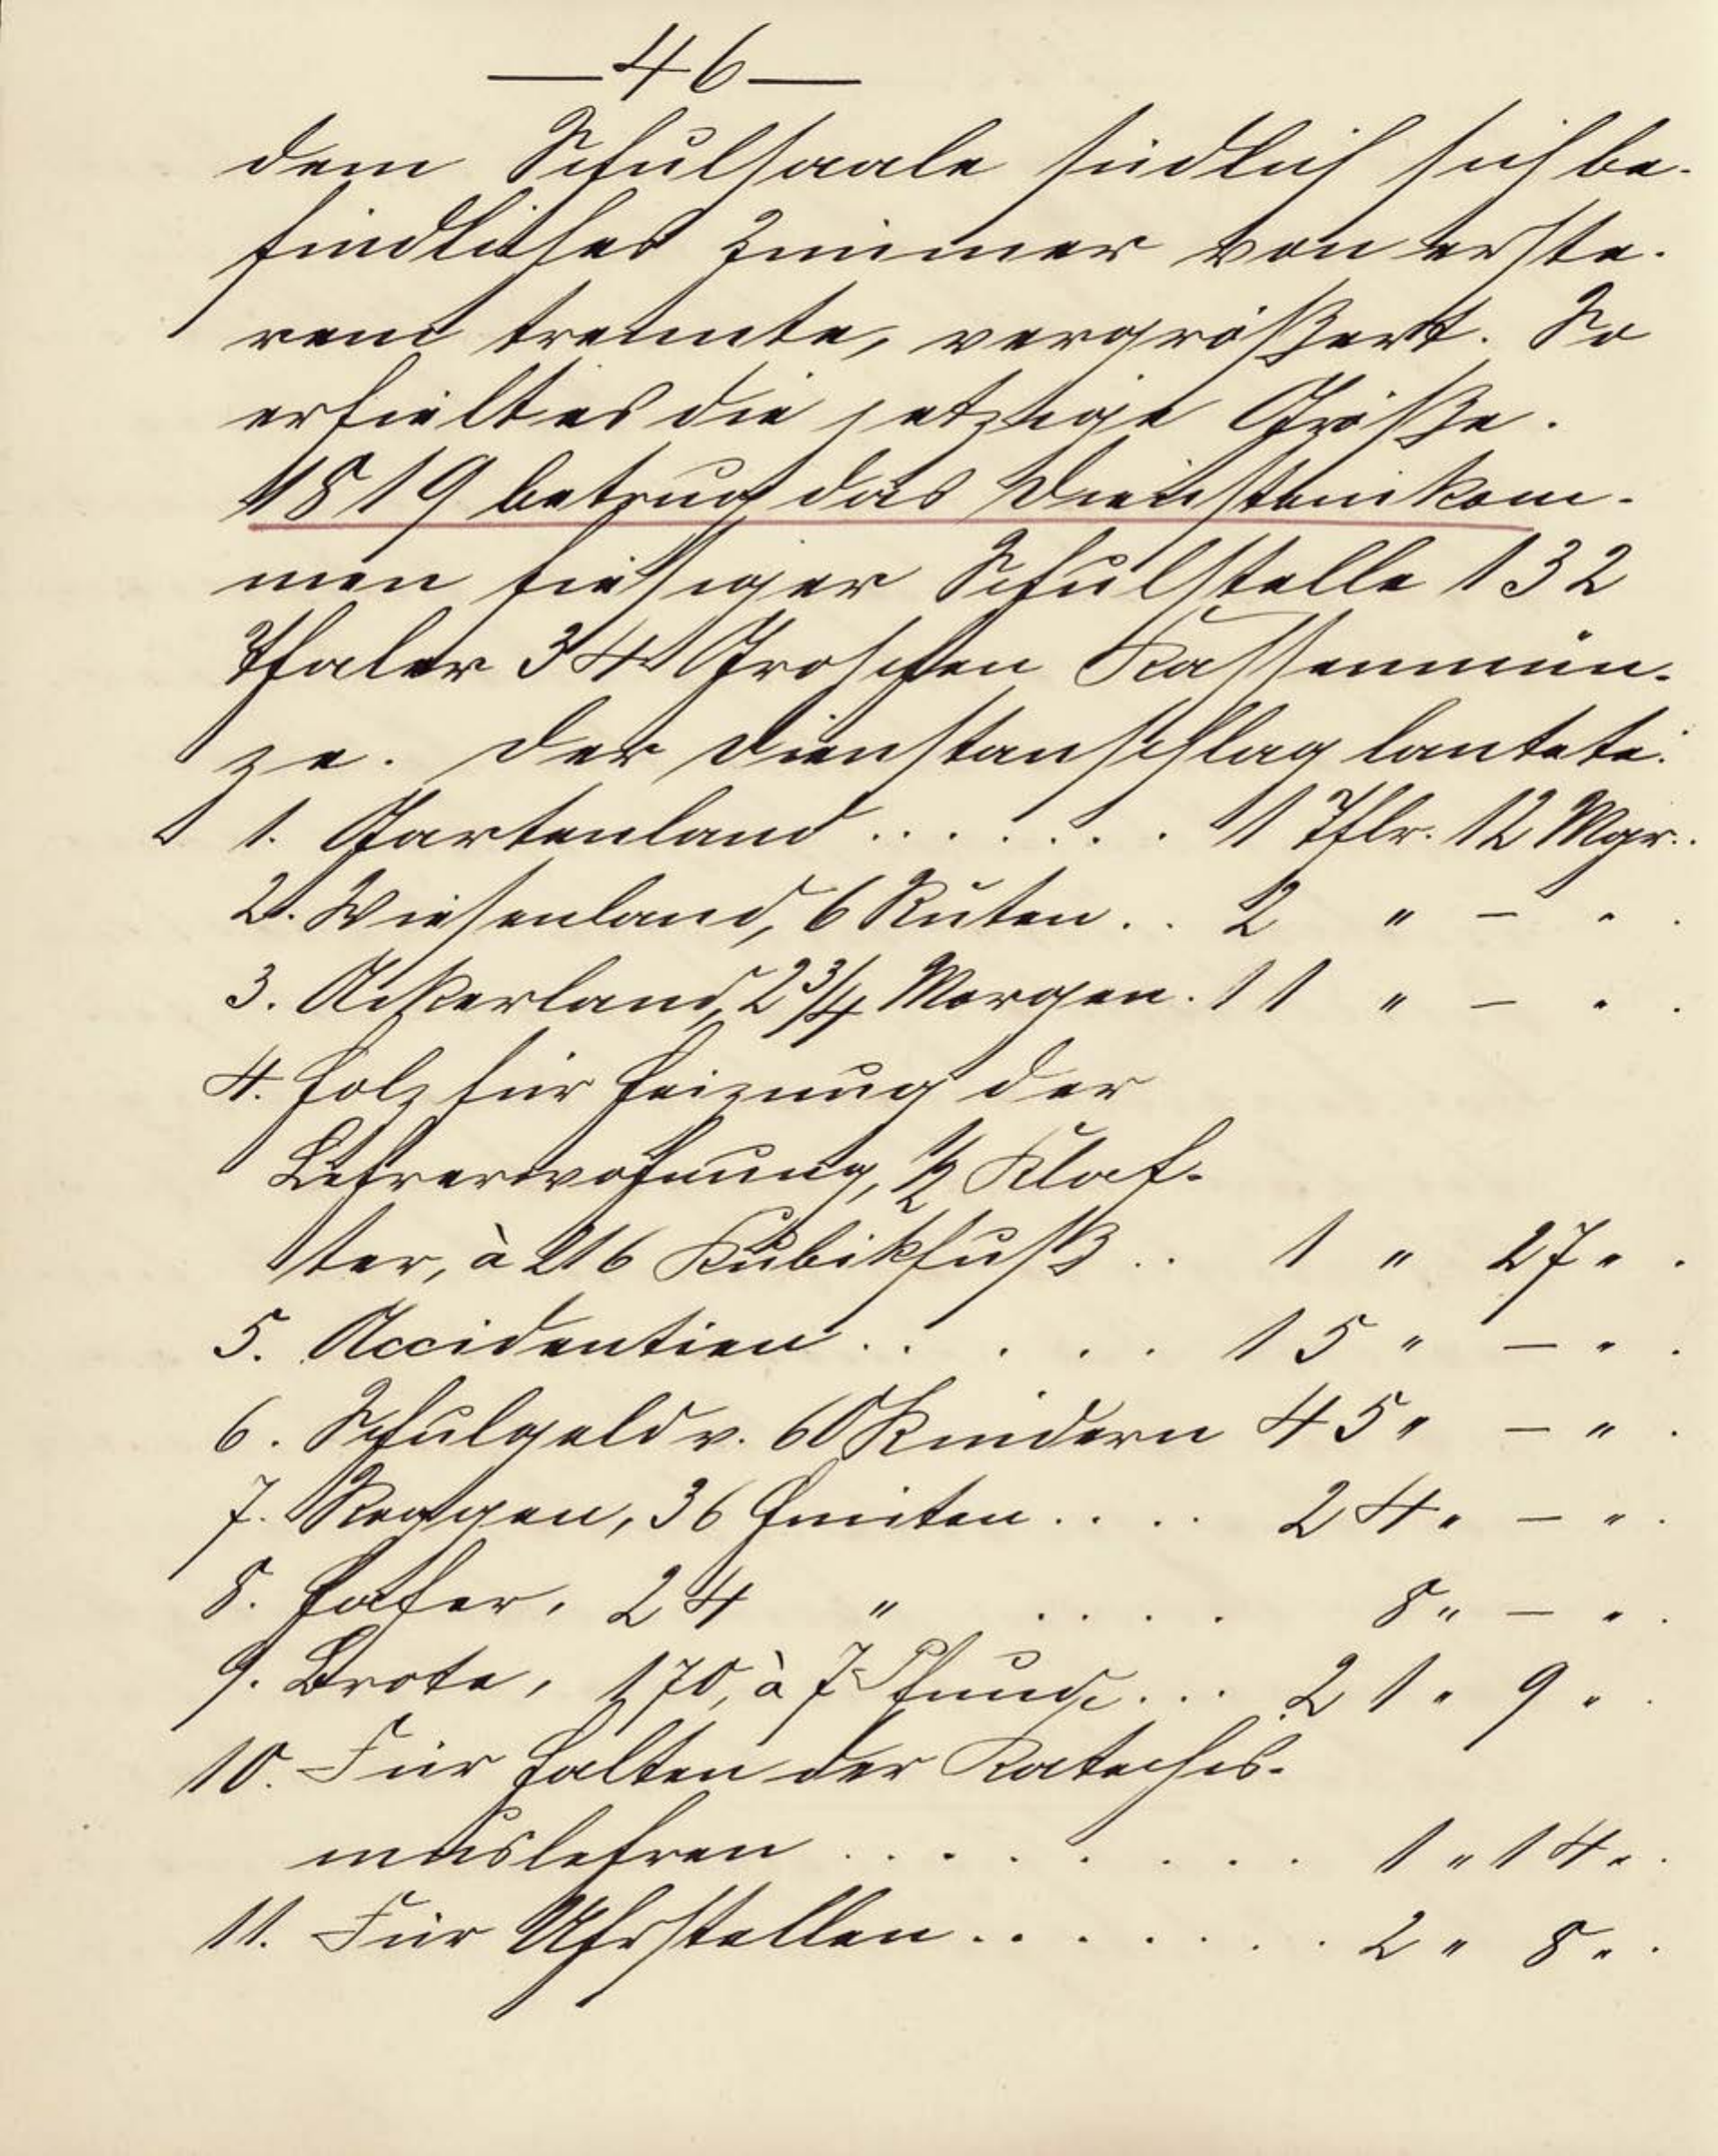 — 46 —
dem Schulsaale südlich sich be-
findliches Zimmer von erste-
rem trennte, vergrößert. So
erhielt es die jetzige Größe.
1819 betrug das Diensteinkom-
men hiesiger Schulstelle 132
Thaler 34 Groschen Kassenmün-
ze. Der Dienstanschlag lautete:
1. Gartenland . . . . . . . 1 Thlr. 12 Mgr..
2. Wiesenland, 6 Ruten . . 2 " — " .
3. Ackerland, 2 3/4 Morgen . 11 " — " .
4. Holz für Heizung der
Lehrerwohnung, 1/2 Klaf-
ter, à 216 Kubikfuß . . 1 " 27 " .
5. Accidentien . . . . . . 15 " — " .
6. Schulgeld v. 60 Kindern 45 " — " .
7. Roggen, 36 Himten . . . . 24 " — " .
8. Hafer, 24 " . . . . 8 " — " .
9. Brote, 170, à 7 Pfund . . . 21 " 9 " .
10. Für Halten der Katechis-
muslehren . . . . . . . . . 1 " 14 " .
11. Für Uhrstellen . . . . . . . . 2 " 8 " .